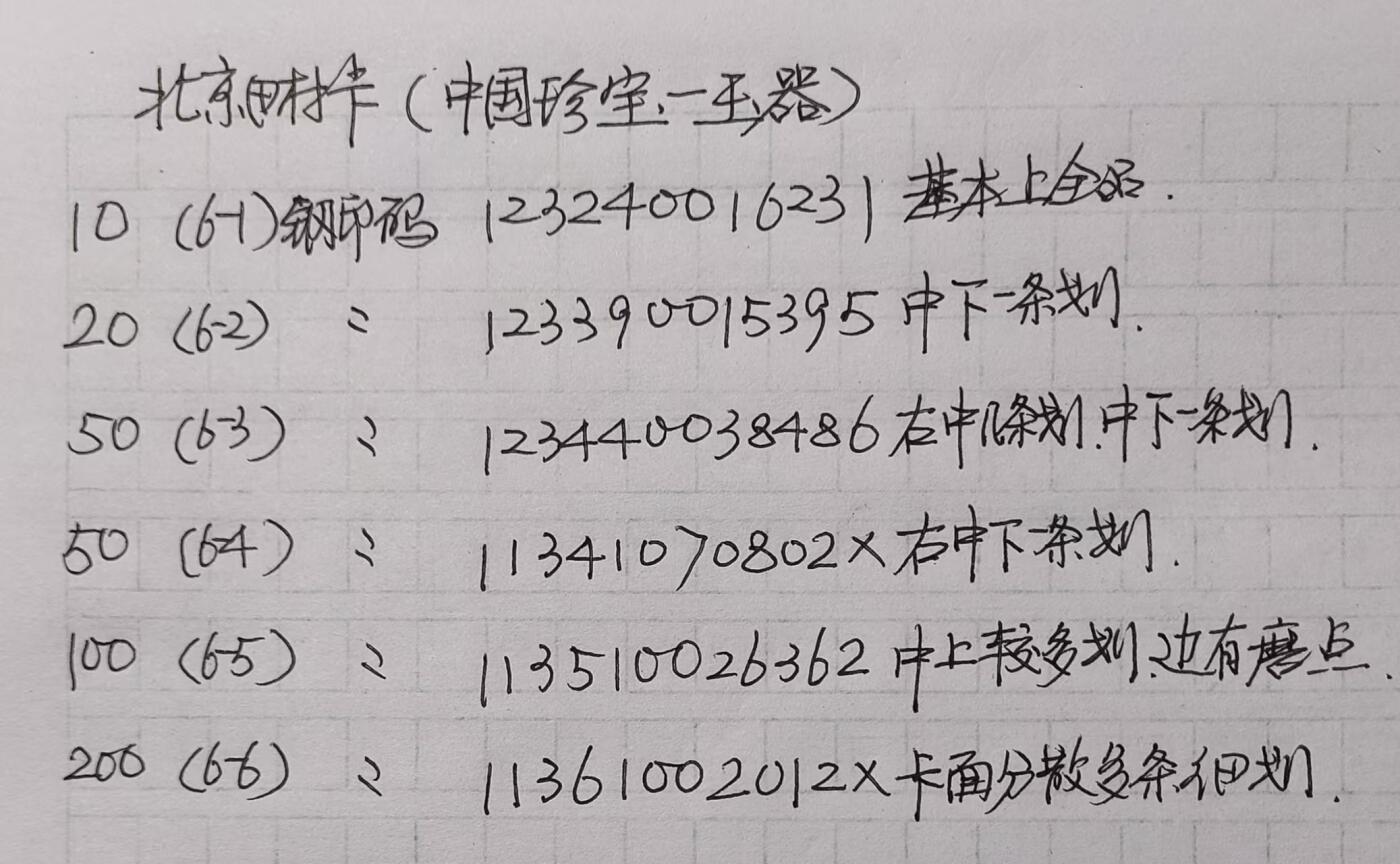 北京田村卡（中国珍宝－玉器）
10（6-1）钢印码 123240016231 基本上全品.
20（6-2） 〃 123390015395 中下一条划.
50（6-3） 〃 123440038486 右中几条划.中下一条划.
50（6-4） 〃 11341070802X 右中下一条划.
100（6-5） 〃 113510026362 中上较多划.边有磨点.
200（6-6） 〃 11361002012X 卡面分散多条细划.